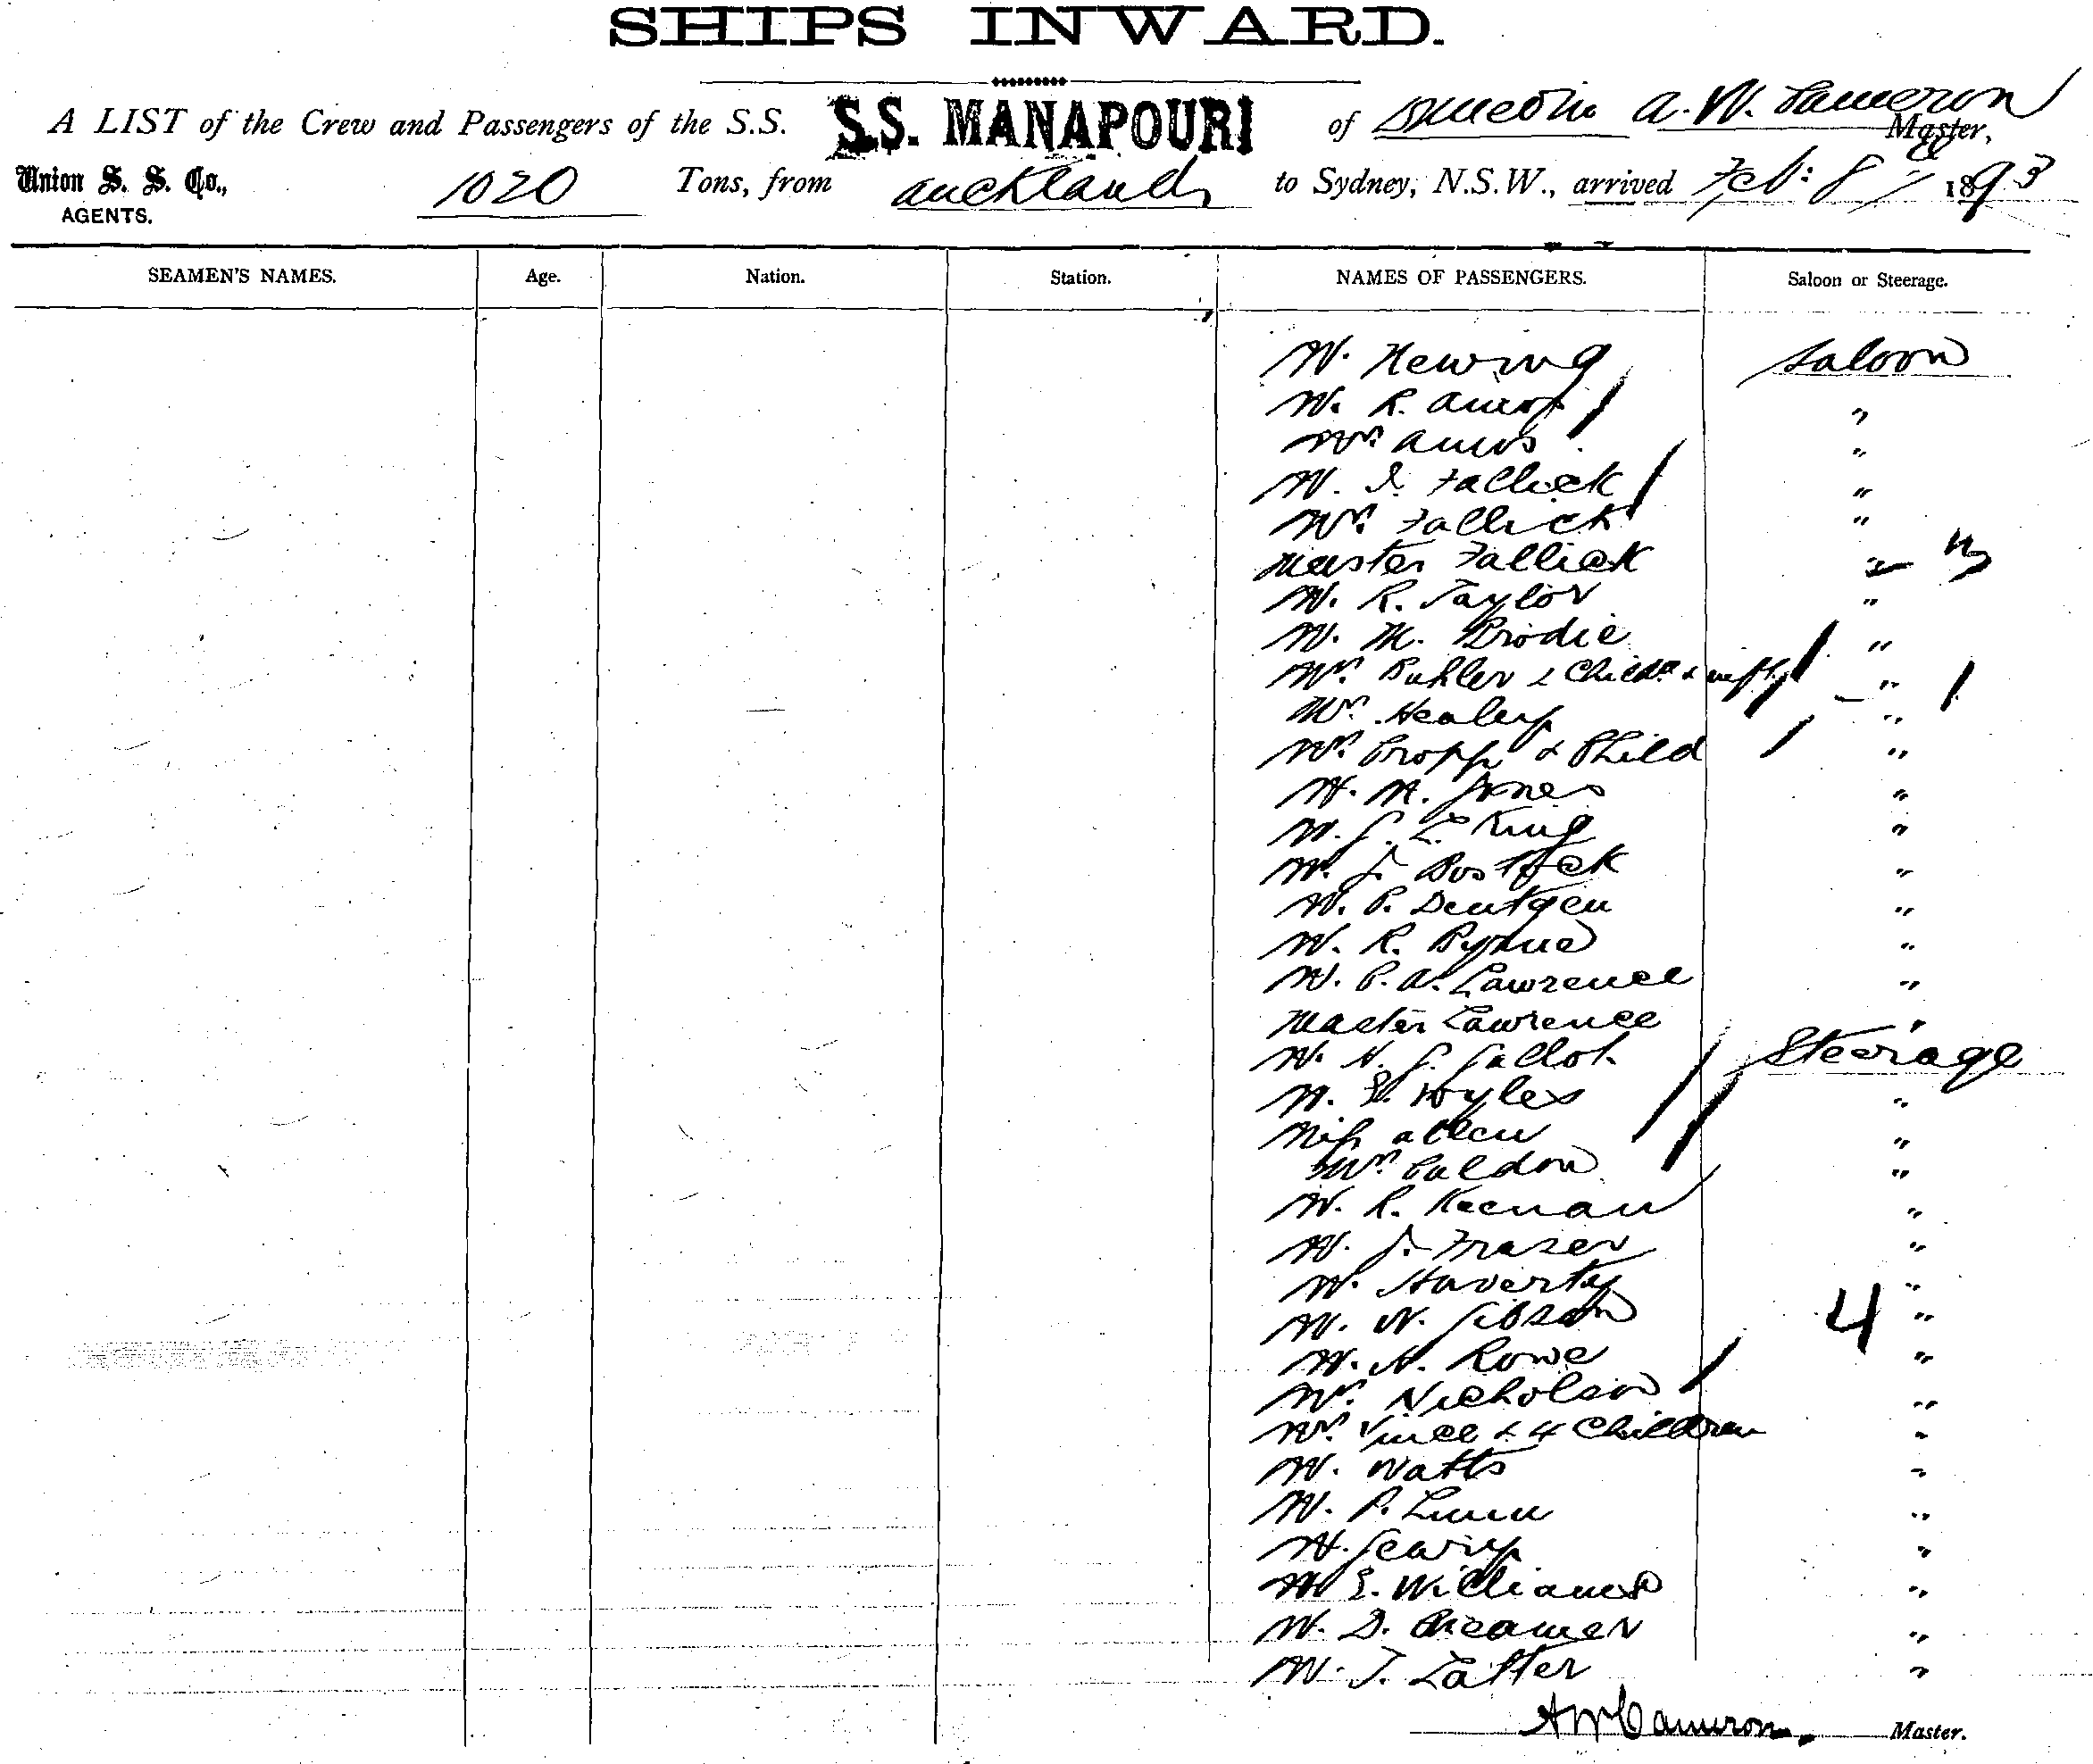 SHIPS INWARD.
A LIST of the Crew and Passengers of the S.S. S.S. MANAPOURI of Dunedin A. W. Cameron Master,
Union S. S. Co., 1020 Tons, from Auckland to Sydney, N.S.W., arrived Feb: 8 1893
AGENTS.
SEAMEN'S NAMES. Age. Nation. Station. NAMES OF PASSENGERS. Saloon or Steerage.
Mr. Hewing Saloon
Mr. R. Amos "
Mrs Amos "
Mr. I. Fallick "
Mrs. Fallick "
Master Fallick "
Mr. R. Taylor "
Mr. M. Brodie "
Mrs. Buhler & Child & "
Mrs. Healey "
Mrs. Cropp & Child "
Mr. M. Jones "
Mr. King "
Mr. J. Bostock "
Mr. P. Deutgen "
Mr. R. Byrne "
Mr. P. A. Lawrence "
Master Lawrence "
Mr. H. G. Steerage
Mr. E. Hyles "
Miss Allen "
Mrs. "
Mr. R. Keenan "
Mr. J. Fraser "
Mr. Haverty "
Mr. W. Gibson 4 "
Mr. H. Rowe "
Mrs. Nicholson "
Mrs. Vince & 4 Children "
Mr. Watts "
Mr. P. Lunn "
Mr. Geary "
Mr E. Williams "
Mr. D. Creamer "
Mr. T. Latter "
A W Cameron, Master.